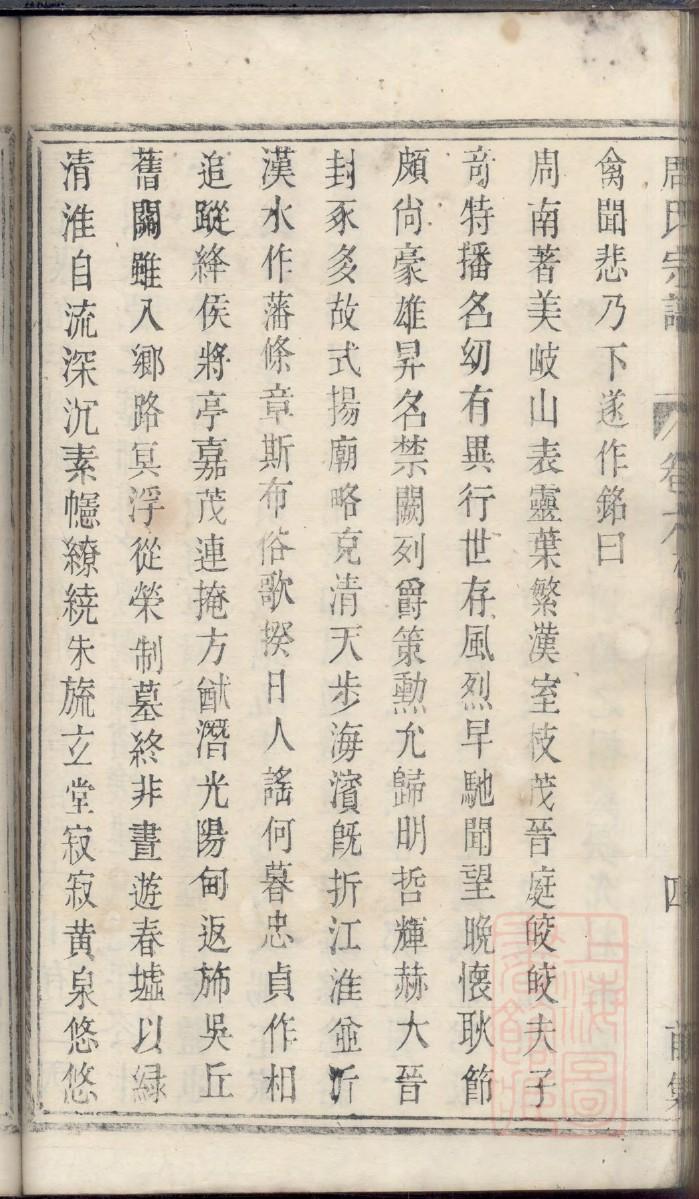 周氏宗譜 卷六 四 前集
禽聞悲乃下遂作銘曰
周南著美岐山表靈葉繁漢室枝茂晉庭皎皎夫子
竒特播名幼有異行世存風烈早馳聞望晩懐耿節
頗尙豪雄昇名禁闕列爵策勲允歸明哲輝赫大晉
封豕多故式揚廟略克清天步海濱旣折江淮並泝
漢水作藩條章斯布俗歌揆日人謠何暮忠貞作相
追蹤絳侯將亭嘉茂連掩方猷潛光陽甸返斾吳丘
舊關雖入鄉路冥浮從榮制墓終非晝遊春墟以緑
清淮自流深沉素幰繚繞朱旒玄堂寂寂黄泉悠悠
上海圖書館藏